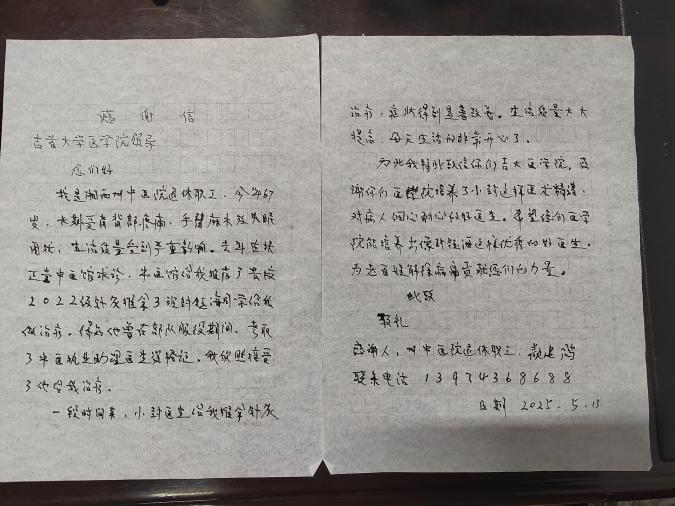 感谢信
吉首大学医学院领导
您们好
我是湘西州中医院退休职工,今年67
岁,长期受肩背部疼痛,手臂麻木及失眠
困扰,生活质量受到严重影响。去年在扶
正堂中医馆求诊,中医馆给我推荐了贵校
2022级针灸推拿3班封超海同学给我
做治疗。得知他曾在部队服役期间,考取
了中医执业助理医生资格证。我依然接受
了他给我治疗。
一段时间来,小封医生给我推拿针灸
治疗,症状得到显著改善。生活质量大大
提高,每天生活的非常开心了。
为此我特此致信你们吉大医学院,感
谢你们医学院培养了小封这样医术精湛,
对病人细心耐心的好医生。希望您们医学
院能培养出像封超海这样优秀的好医生。
为老百姓解除病痛贡献您们的力量。
此致
敬礼
感谢人:州中医院退休职工:
联系电话 13974368688
日期 2025.5.13